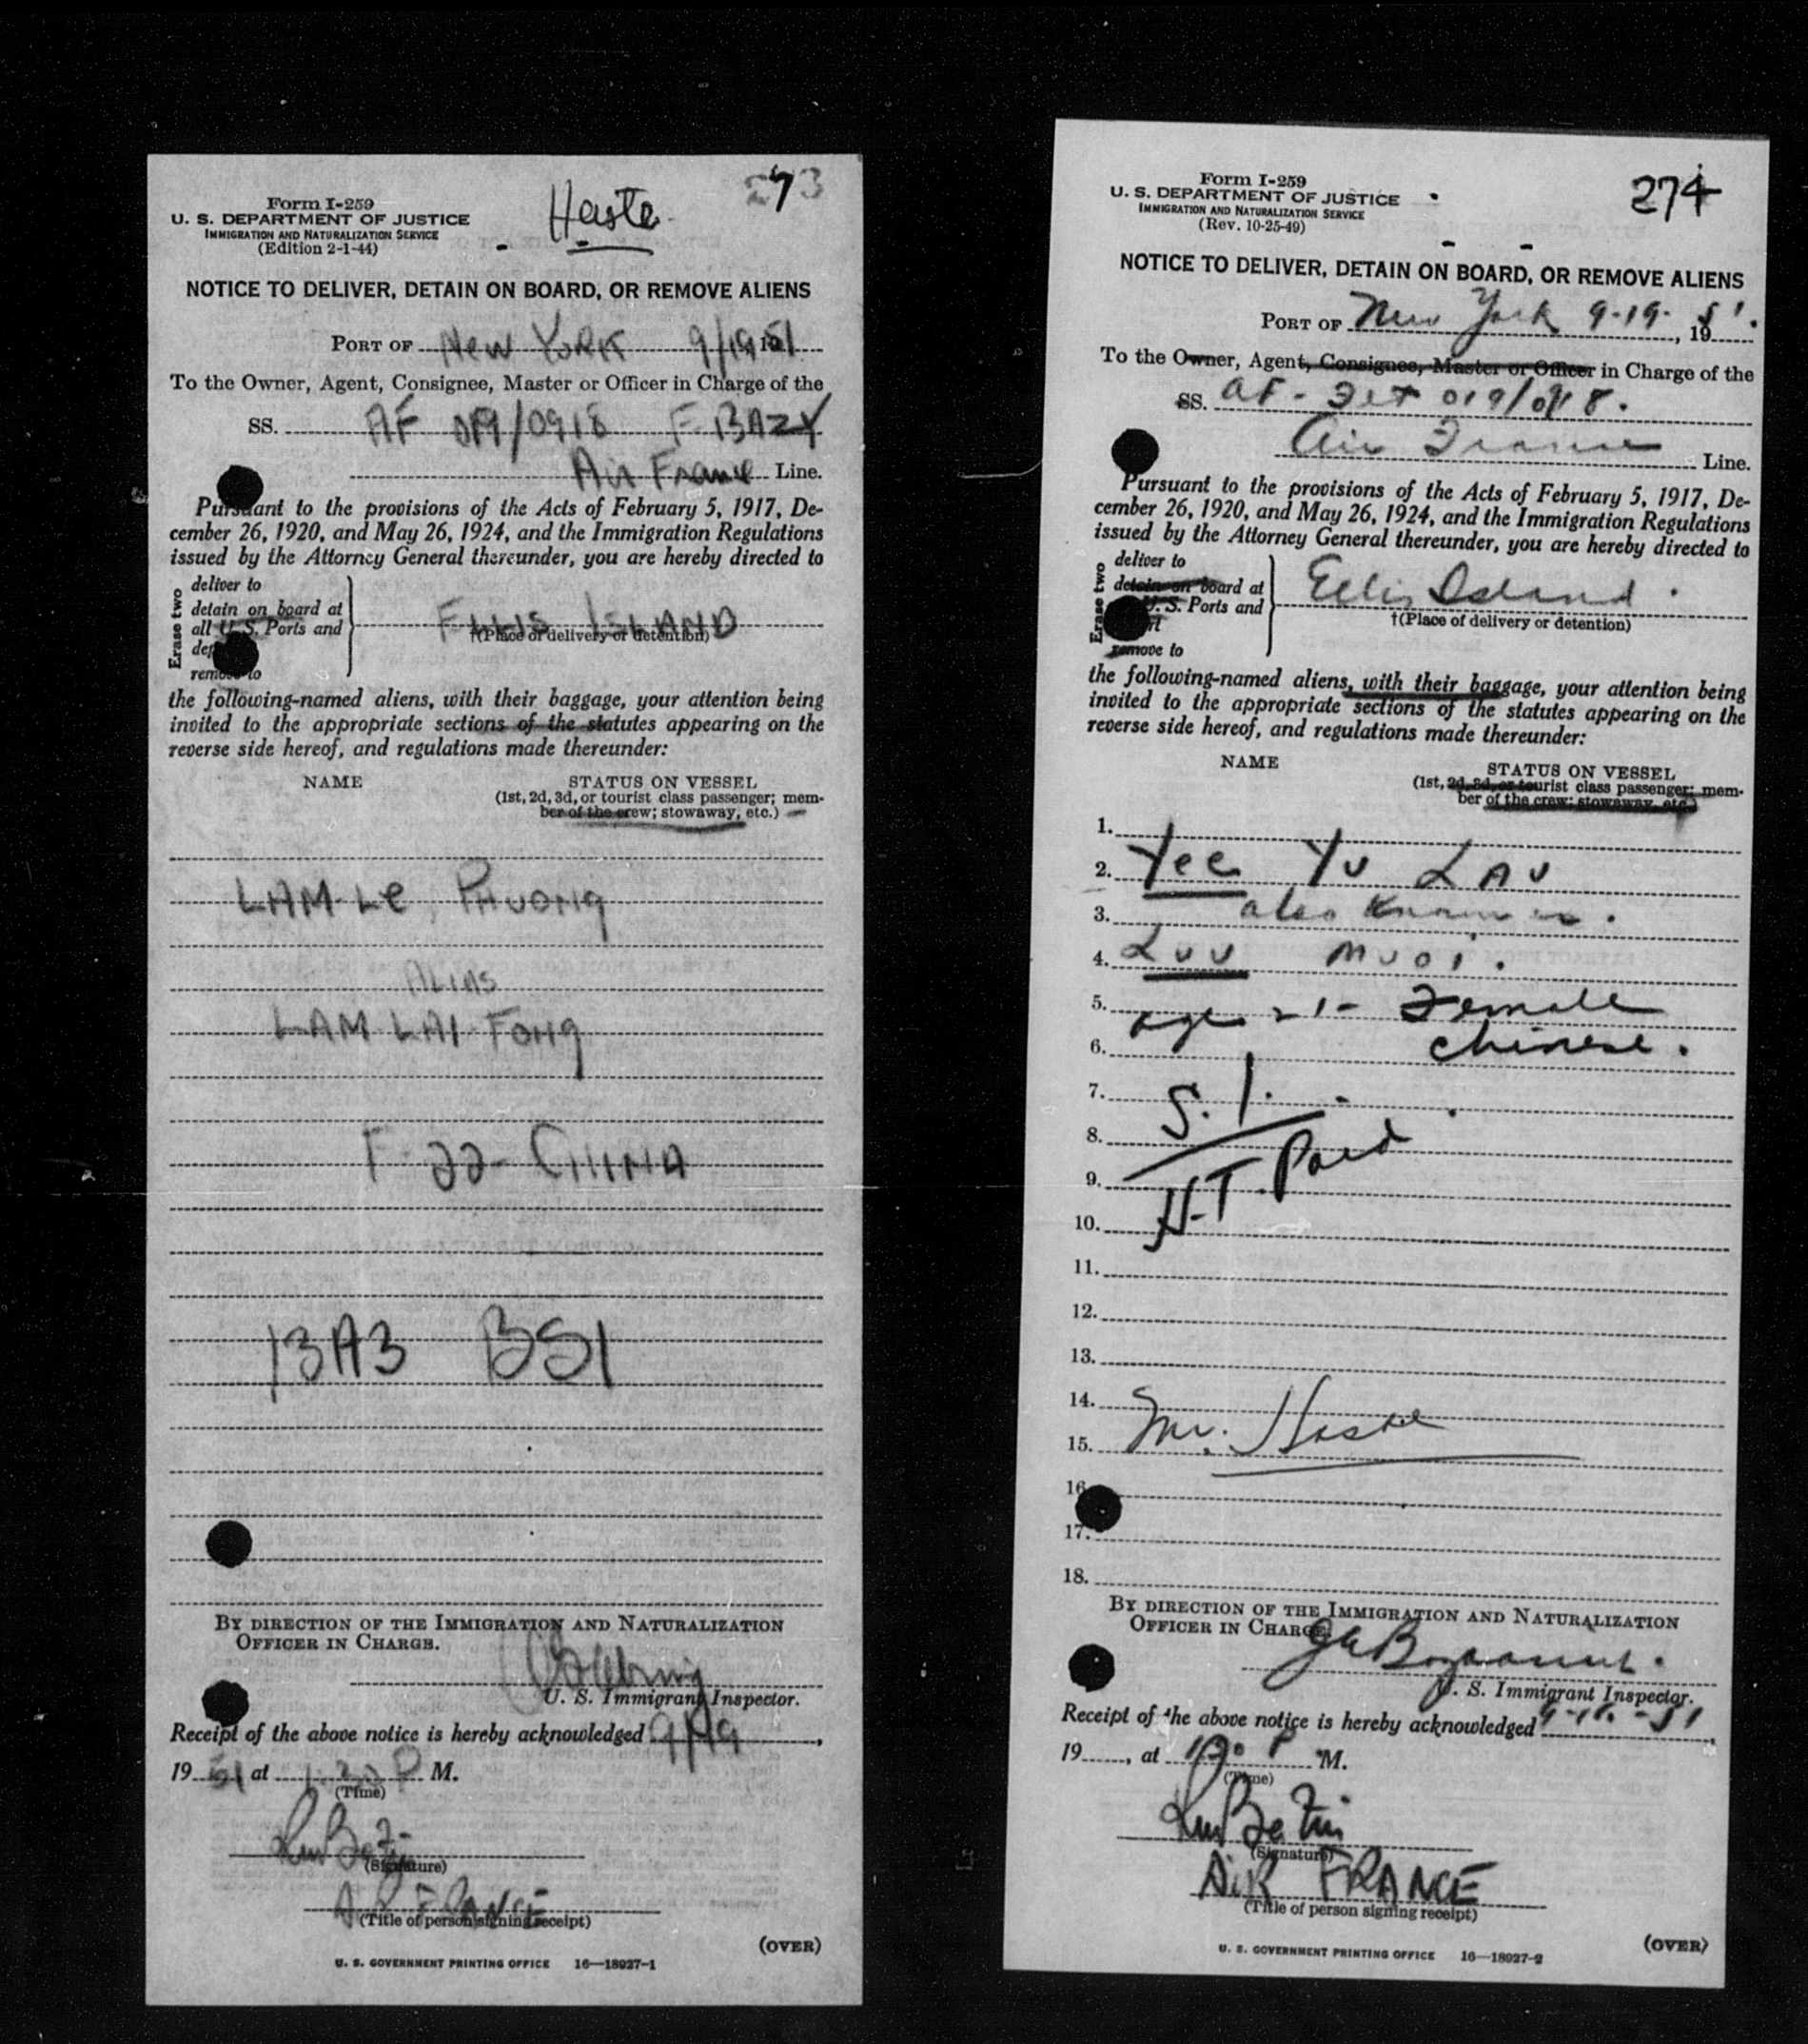 273
Form I-259
Haste
U. S. DEPARTMENT OF JUSTICE
IMMIGRATION AND NATURALIZATION SERVICE
(Edition 2-1-44)
NOTICE TO DELIVER, DETAIN ON BOARD, OR REMOVE ALIENS
PORT OF New York 9/19 1951
To the Owner, Agent, Consignee, Master or Officer in Charge of the
SS. AF 019/0918 F-BAZY
Air France Line.
Pursuant to the provisions of the Acts of February 5, 1917, De-
cember 26, 1920, and May 26, 1924, and the Immigration Regulations
issued by the Attorney General thereunder, you are hereby directed to
Erase two
deliver to
detain on board at
all U.S. Ports and
remove to
ELLIS ISLAND
†(Place of delivery or detention)
the following-named aliens, with their baggage, your attention being
invited to the appropriate sections of the statutes appearing on the
reverse side hereof, and regulations made thereunder:
NAME STATUS ON VESSEL
(1st, 2d, 3d, or tourist class passenger; mem-
ber of the crew; stowaway, etc.)
LAM-Le, PHUONg
ALIAS
LAM LAI-FONg
F-22-CHINA
BSI
BY DIRECTION OF THE IMMIGRATION AND NATURALIZATION
OFFICER IN CHARGE.
U. S. Immigrant Inspector.
Receipt of the above notice is hereby acknowledged 9/19,
19 51 at 1:20 P M.
(Time)
(Signature)
AIR FRANCE
(Title of person signing receipt)
(OVER)
U. S. GOVERNMENT PRINTING OFFICE 16—18027-1
274
Form I-259
U. S. DEPARTMENT OF JUSTICE
IMMIGRATION AND NATURALIZATION SERVICE
(Rev. 10-25-49)
NOTICE TO DELIVER, DETAIN ON BOARD, OR REMOVE ALIENS
PORT OF New York 9-19-, 1951.
To the Owner, Agent, Consignee, Master or Officer in Charge of the
SS. AF- Flt 019/0918.
Air France Line.
Pursuant to the provisions of the Acts of February 5, 1917, De-
cember 26, 1920, and May 26, 1924, and the Immigration Regulations
issued by the Attorney General thereunder, you are hereby directed to
Erase two
deliver to
detain on board at
U.S. Ports and
remove to
Ellis Island.
†(Place of delivery or detention)
the following-named aliens, with their baggage, your attention being
invited to the appropriate sections of the statutes appearing on the
reverse side hereof, and regulations made thereunder:
NAME STATUS ON VESSEL
(1st, 2d, 3d, or tourist class passenger; mem-
ber of the crew; stowaway, etc.)
1.
2. Yee Yu LAU
3. also known as.
4. Luu Muoi.
5. age 21- Female
6. Chinese.
7. S.I.
8.
9. H.T. Paid
10.
11.
12.
13.
14.
15. Mr. Haste
16.
17.
18.
BY DIRECTION OF THE IMMIGRATION AND NATURALIZATION
OFFICER IN CHARGE.
U. S. Immigrant Inspector.
Receipt of the above notice is hereby acknowledged
19, at 120 P M.
(Time)
(Signature)
AIR FRANCE
(Title of person signing receipt)
(OVER)
U. S. GOVERNMENT PRINTING OFFICE 16—18027-2